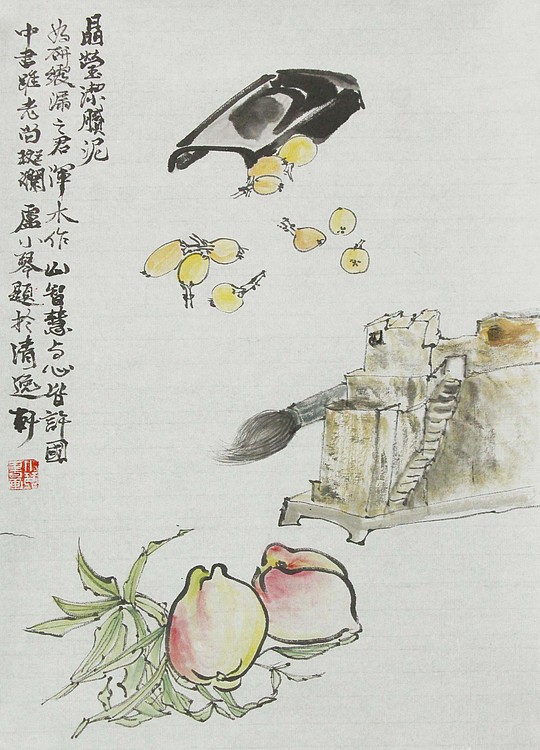 晶瑩潔膩泥
為研漏之君渾木作山智慧与心皆許國
中書雖老尚斑瀾 盧小琴題於清逸軒